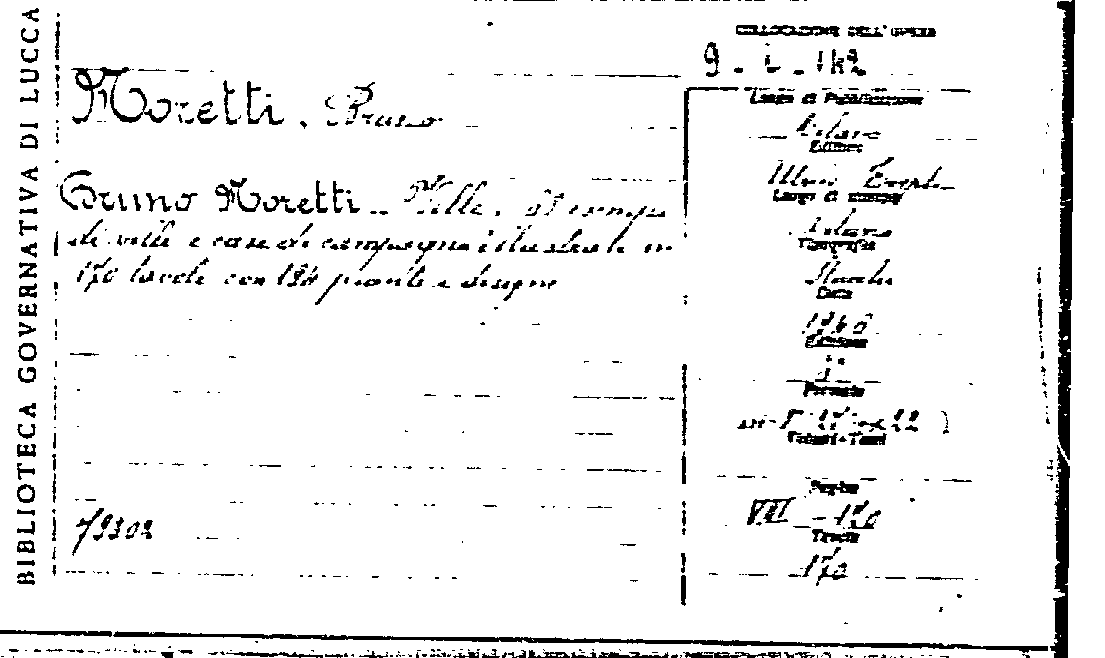 BIBLIOTECA GOVERNATIVA DI LUCCA
COLLOCAZIONE DELL'OPERA
Moretti. Bruno
Bruno Moretti. Ville. esempi
di ville e case di campagna illustrati in
170 tavole con 184 piante e disegni
79302
Luogo di Pubblicazione
Milano
Editore
Ulrico Hoepli
Luogo di stampa
Milano
Tipografia
Data
Edizione
Formato
Volumi-Tomi
Pagine
VIII - 170
Tavole
170